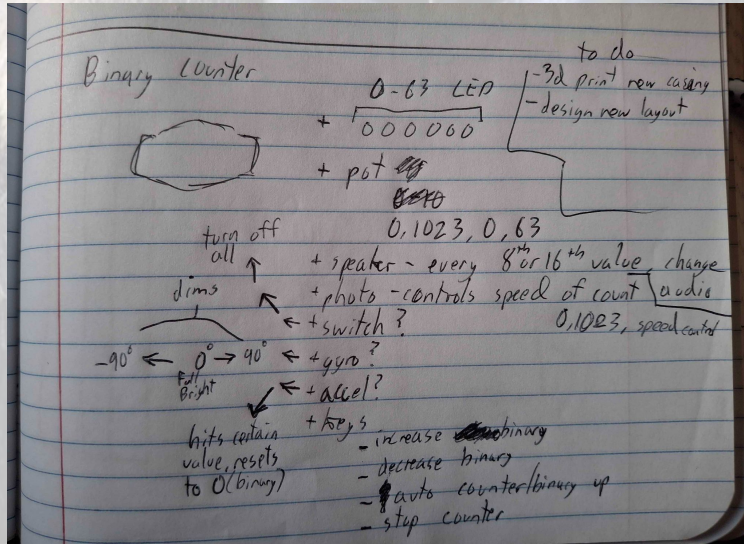 to do
Binary Counter
-3d print new casing
-design new layout
0-63 LED
+ 000000
+ pot
0,1023,0,63
turn off
all
+ speaker - every 8th or 16th value change
audio
+ photo - controls speed of count
0,1023, speed control
dims
+ switch?
-90° 0° 90°
Full
Bright
+ gyro?
+ accel?
+ keys
hits certain
value, resets
to 0(binary)
- increase binary
- decrease binary
- auto counter/binary up
- stop counter